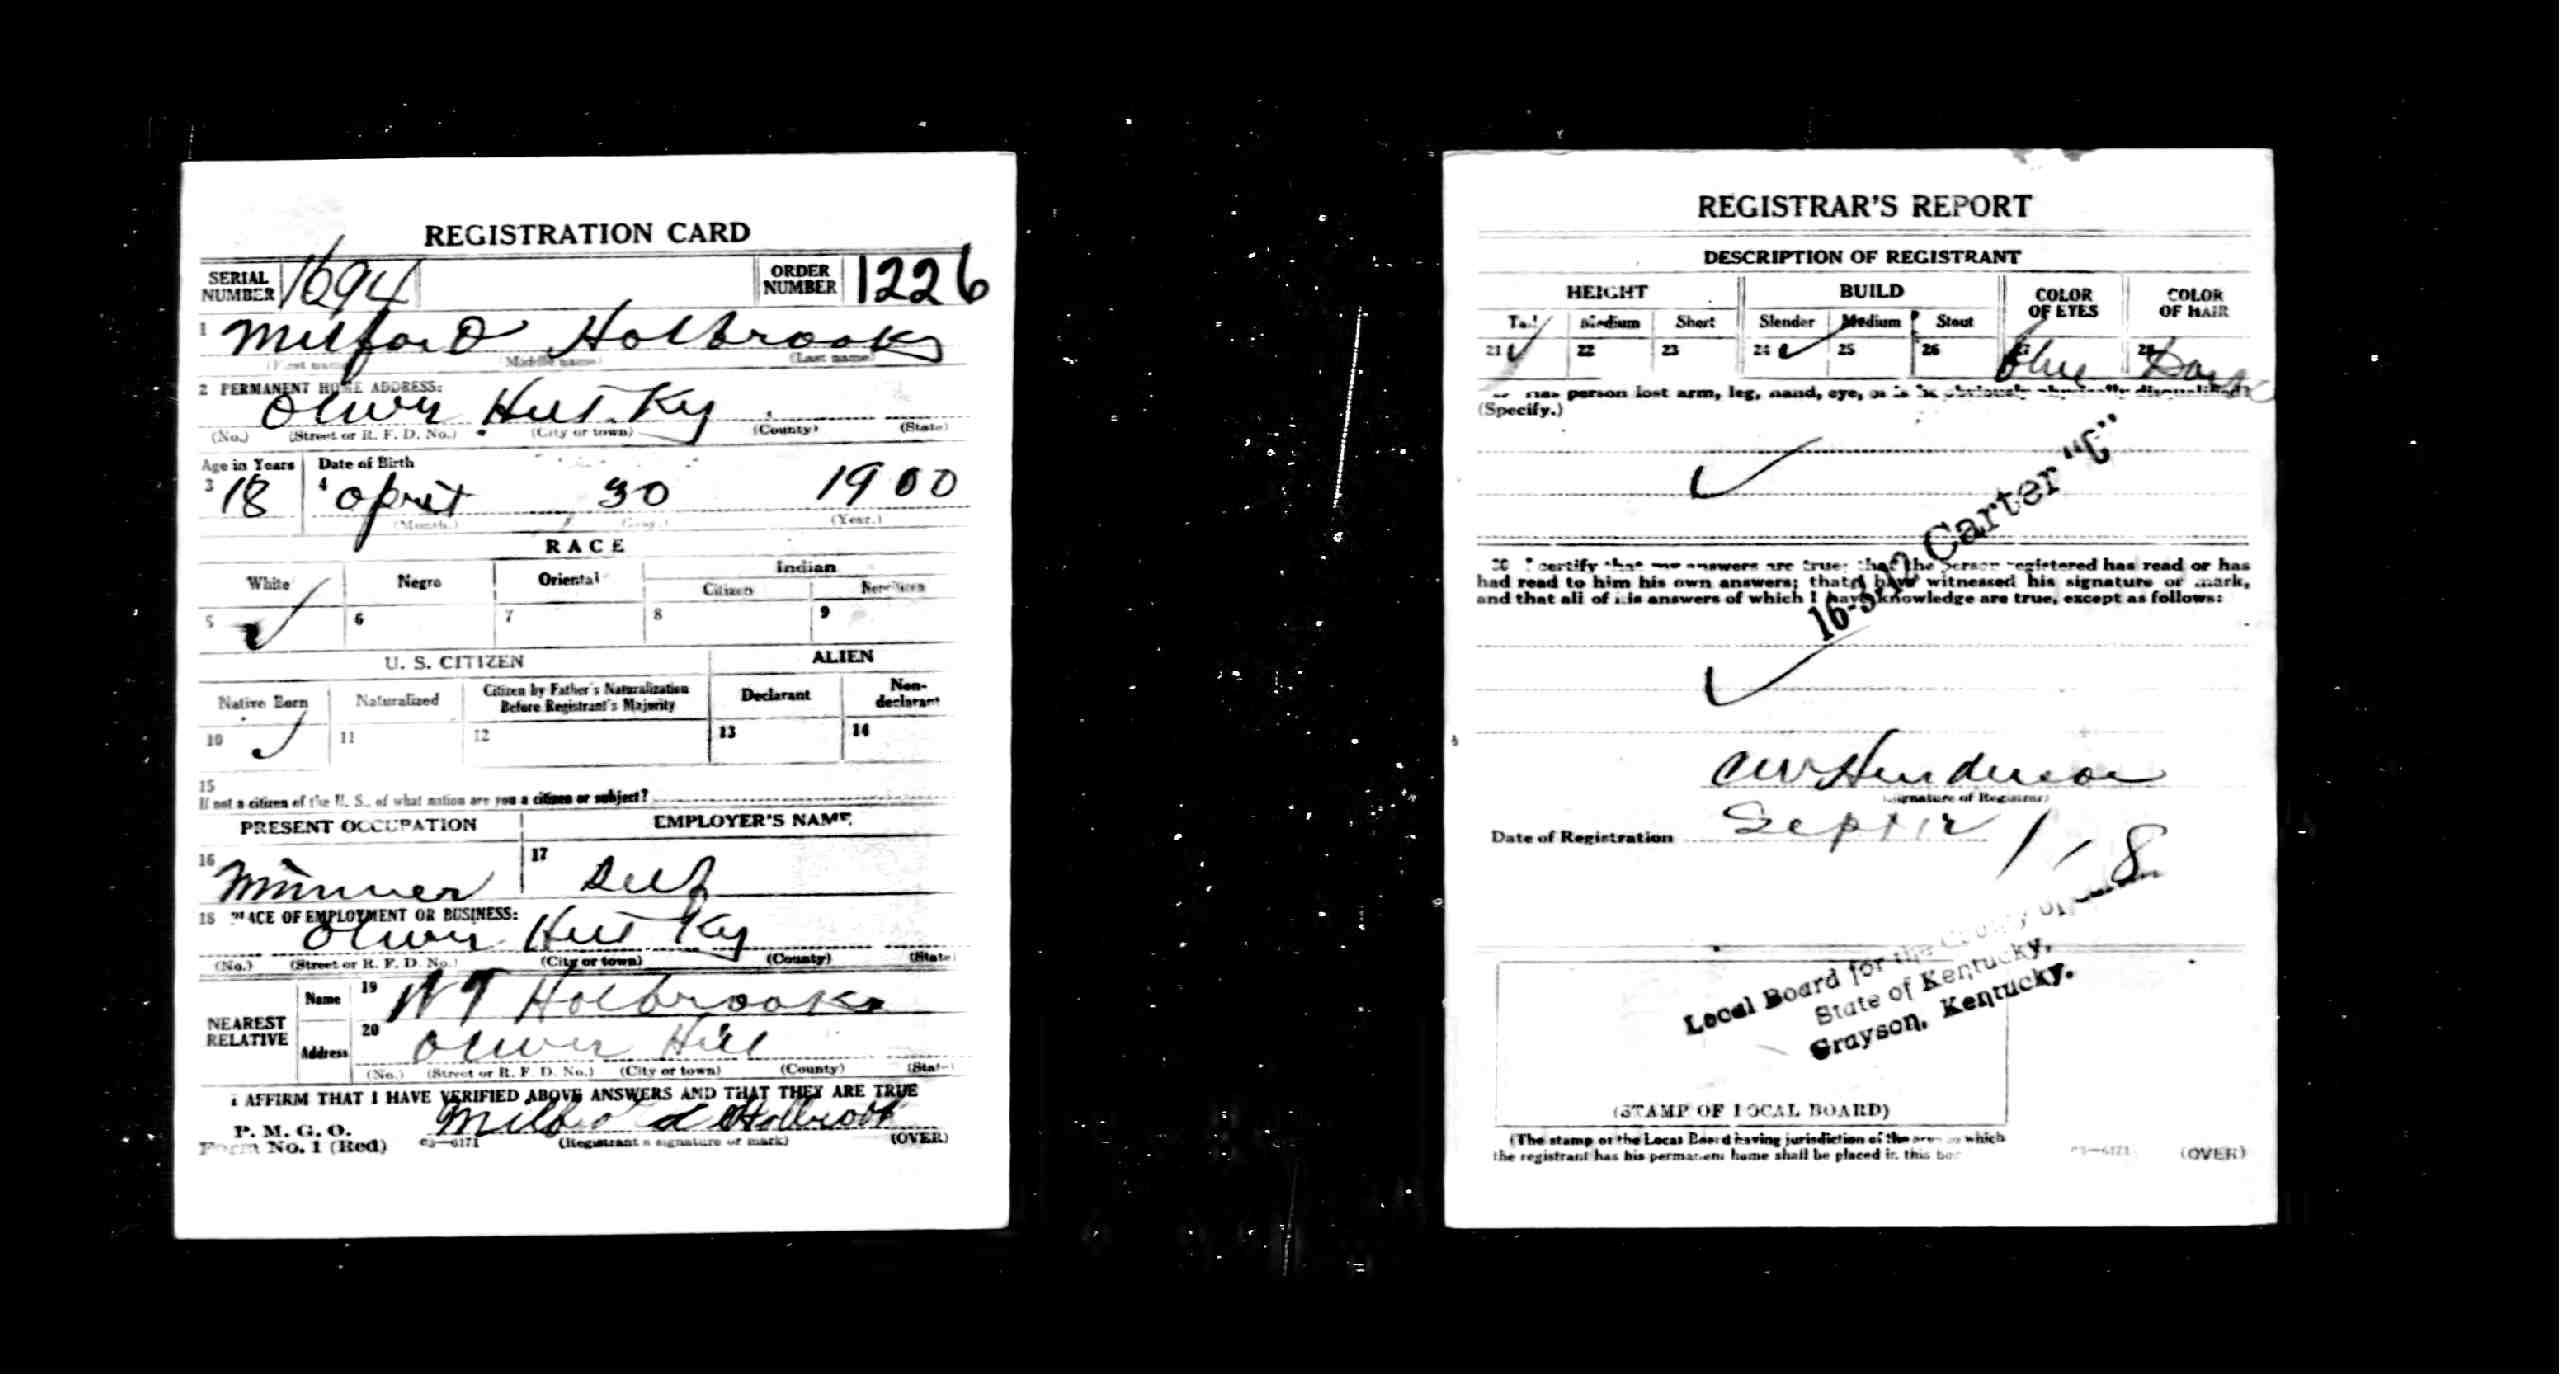 REGISTRATION CARD
SERIAL NUMBER 1694 ORDER NUMBER 1226
1 Milford Holbrooks
(First name) (Middle name) (Last name)
2 PERMANENT HOME ADDRESS:
Oliver Hill Ky
(No.) (Street or R. F. D. No.) (City or town) (County) (State)
Age in Years Date of Birth
3 18 4 April 30 1900
(Month.) (Day.) (Year.)
RACE
White Negro Oriental Indian
Citizen Noncitizen
5 ✓ 6 7 8 9
U. S. CITIZEN ALIEN
Native Born Naturalized Citizen by Father's Naturalization Before Registrant's Majority Declarant Non-declarant
10 ✓ 11 12 13 14
15
If not a citizen of the U. S., of what nation are you a citizen or subject?
PRESENT OCCUPATION EMPLOYER'S NAME
16 Minner 17 Self
18 PLACE OF EMPLOYMENT OR BUSINESS:
Oliver Hill Ky
(No.) (Street or R. F. D. No.) (City or town) (County) (State)
NEAREST RELATIVE Name 19 W T Holbrooks
Address 20 Oliver Hill
(No.) (Street or R. F. D. No.) (City or town) (County) (State)
I AFFIRM THAT I HAVE VERIFIED ABOVE ANSWERS AND THAT THEY ARE TRUE
P. M. G. O. Milford Holbrook
Form No. 1 (Red) 03—6171 (Registrant's signature or mark) (OVER)
REGISTRAR'S REPORT
DESCRIPTION OF REGISTRANT
HEIGHT BUILD COLOR OF EYES COLOR OF HAIR
Tall Medium Short Slender Medium Stout
21 ✓ 22 23 24 ✓ 25 26 27 Blue 28 Dark
person lost arm, leg, hand, eye, or is he obviously physically disqualified?
(Specify.)
16-3-12 Carter "C"
30 I certify that my answers are true; that the person registered has read or has
had read to him his own answers; that I have witnessed his signature or mark,
and that all of his answers of which I have knowledge are true, except as follows:
CW Henderson
(Signature of Registrar)
Date of Registration Sept 12 1 8
Local Board for the County of
State of Kentucky,
Grayson, Kentucky.
(STAMP OF LOCAL BOARD)
(The stamp of the Local Board having jurisdiction of the area in which
the registrant has his permanent home shall be placed in this box.
03—6171 (OVER)